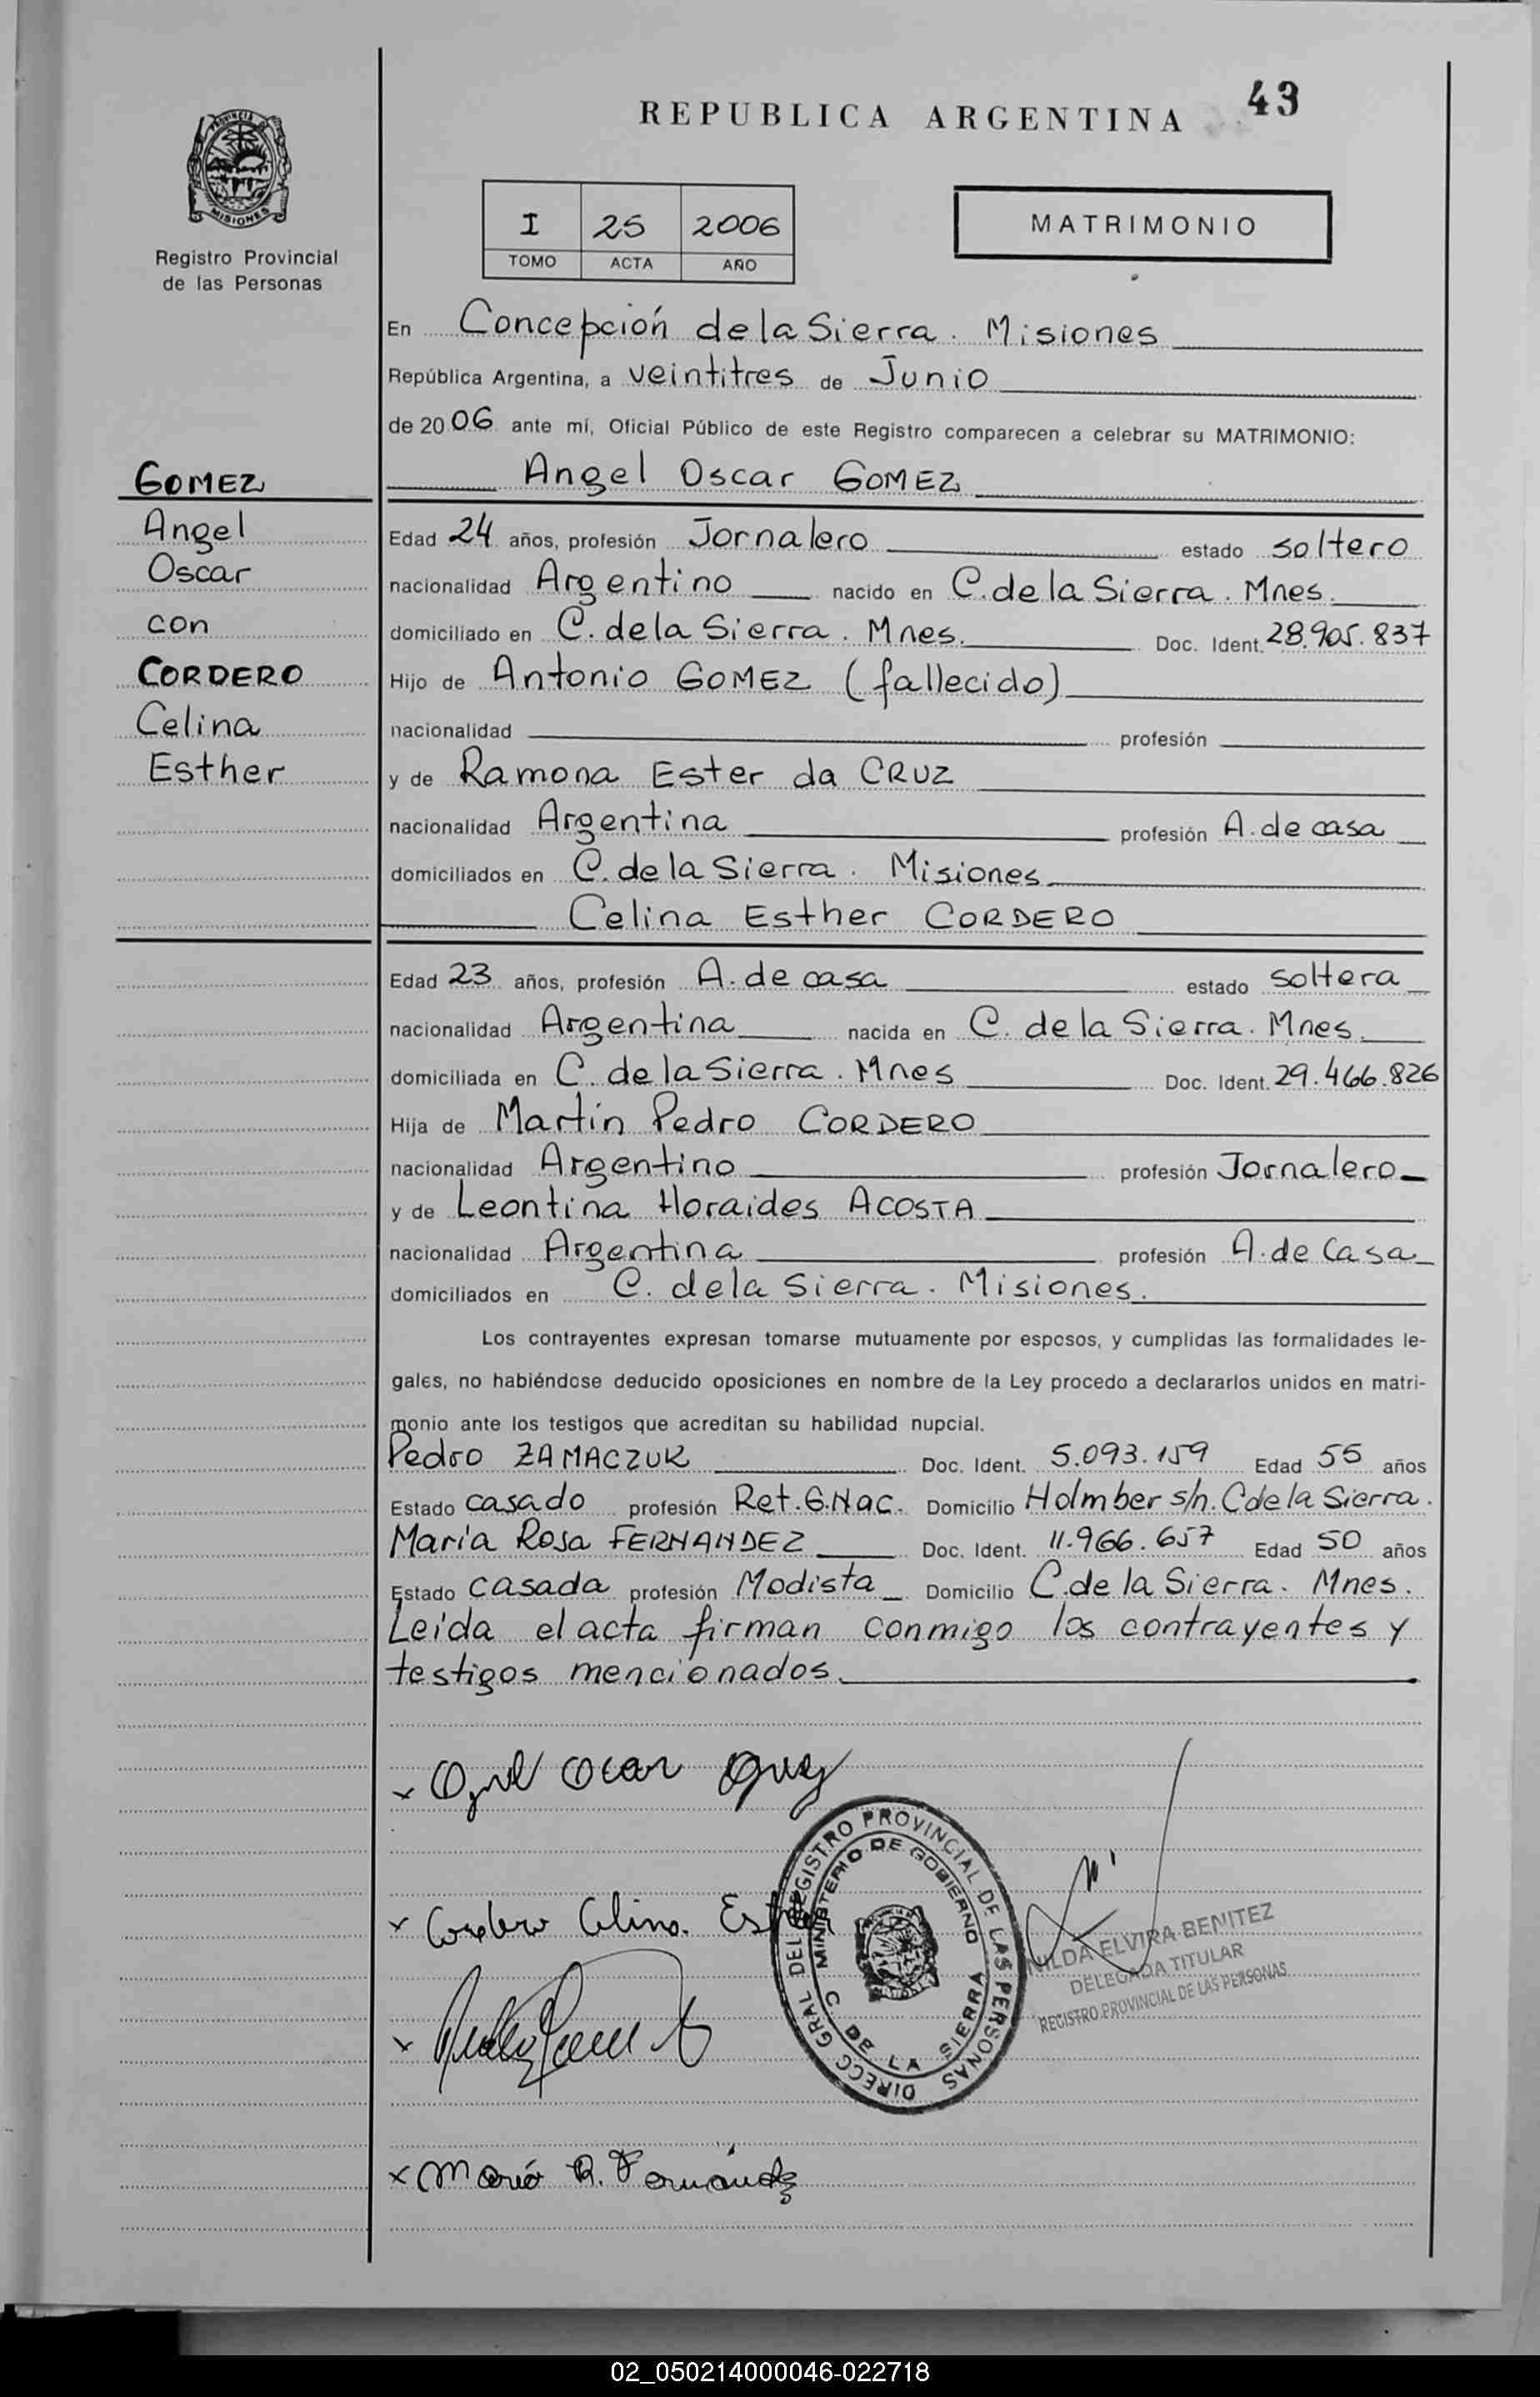 43
REPUBLICA ARGENTINA
PROVINCIA DE
MISIONES
Registro Provincial
de las Personas
I 25 2006
TOMO ACTA AÑO
MATRIMONIO
En Concepción de la Sierra. Misiones
República Argentina, a veintitres de Junio
de 2006 ante mí, Oficial Público de este Registro comparecen a celebrar su MATRIMONIO:
GOMEZ
Angel
Oscar
con
CORDERO
Celina
Esther
Angel Oscar GOMEZ
Edad 24 años, profesión Jornalero estado soltero
nacionalidad Argentino nacido en C. de la Sierra. Mnes.
domiciliado en C. de la Sierra. Mnes. Doc. Ident. 28.905.837
Hijo de Antonio GOMEZ (fallecido)
nacionalidad profesión
y de Ramona Ester da CRUZ
nacionalidad Argentina profesión A. de casa
domiciliados en C. de la Sierra. Misiones
Celina Esther CORDERO
Edad 23 años, profesión A. de casa estado soltera
nacionalidad Argentina nacida en C. de la Sierra. Mnes.
domiciliada en C. de la Sierra. Mnes Doc. Ident. 29.466.826
Hija de Martín Pedro CORDERO
nacionalidad Argentino profesión Jornalero
y de Leontina Horaides ACOSTA
nacionalidad Argentina profesión A. de Casa
domiciliados en C. de la Sierra. Misiones.
Los contrayentes expresan tomarse mutuamente por esposos, y cumplidas las formalidades le-
gales, no habiéndose deducido oposiciones en nombre de la Ley procedo a declararlos unidos en matri-
monio ante los testigos que acreditan su habilidad nupcial.
Pedro ZAMACZUK Doc. Ident. 5.093.159 Edad 55 años
Estado casado profesión Ret. G. Nac. Domicilio Holmber s/n. C de la Sierra.
María Rosa FERNANDEZ Doc. Ident. 11.966.657 Edad 50 años
Estado casada profesión Modista Domicilio C. de la Sierra. Mnes.
Leída el acta firman conmigo los contrayentes y
testigos mencionados.
x Angel Oscar
x Cordero Celina. Esther
x
DIRECC GRAL DEL REGISTRO PROVINCIAL DE LAS PERSONAS
MINISTERIO DE GOBIERNO
C. DE LA SIERRA
NILDA ELVIRA BENITEZ
DELEGADA TITULAR
REGISTRO PROVINCIAL DE LAS PERSONAS
x María R. Fernández
02_050214000046-022718